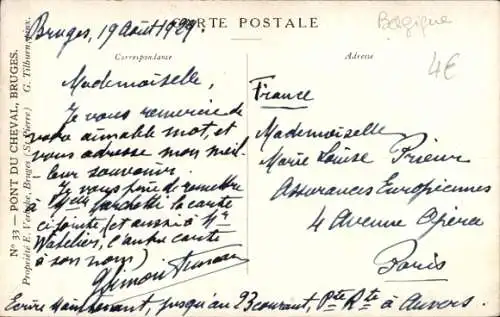 CARTE POSTALE
Belgique
4€
Correspondance
Adresse
Bruges, 19 Août 1929.
Mademoiselle,
Je vous remercie de
votre aimable mot, et
vous adresse mon meil-
leur souvenir.
Je vous prie de remettre
à Melle Marchetti la carte
ci-jointe (et aussi à Mr
Watelier, l'autre carte
à son nom)
Ecrire maintenant, jusqu'au 23 courant, Pte Rte à Anvers.
France
Mademoiselle
Marie Louise Prieur
Assurances Européennes
4 Avenue Opéra
Paris
N° 33 — PONT DU CHEVAL, BRUGES.
G. Tilburn, pinx.
Propriété E. Bruges (St-Pierre)